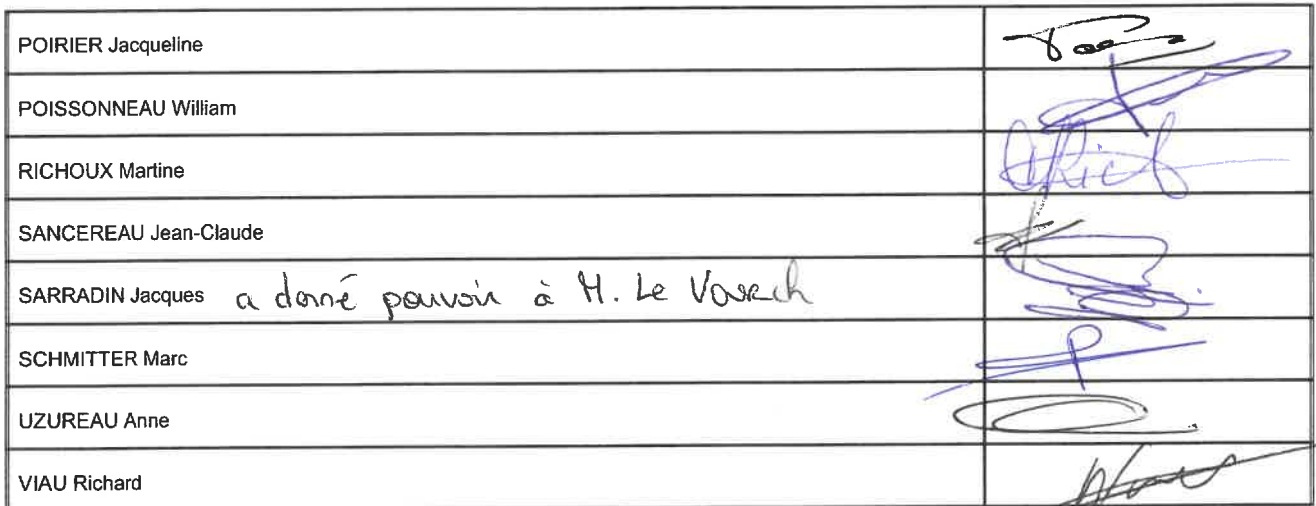 POIRIER Jacqueline
POISSONNEAU William
RICHOUX Martine
SANCEREAU Jean-Claude
SARRADIN Jacques a donné pouvoir à M. Le Vourch
SCHMITTER Marc
UZUREAU Anne
VIAU Richard